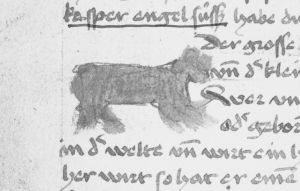 kasper engelsüss habe du
Der grosse
vn̄ dᵉ klei
Wer vn
odᵉ gebor
in dᵉ welte vn̄ wirt ein k
her wirt so hat er eine